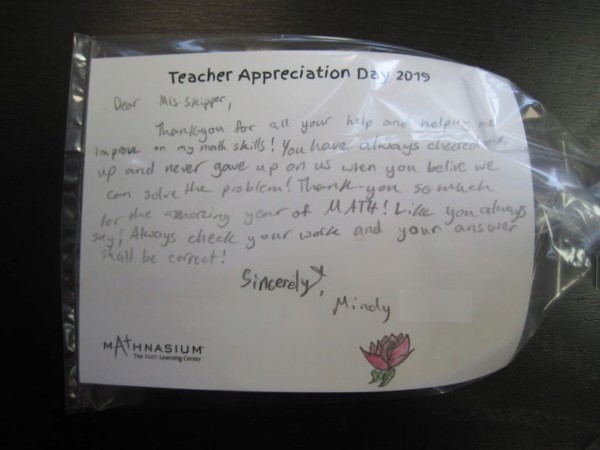 Teacher Appreciation Day 2019
Dear Mis Skipper,
Thankyou for all your help and helping me
improve on my math skills! You have always cheered
up and never gave up on us when you belive we
can solve the problem! Thank-you so much
for the amazing year of MATH! Like you always
say! Always check your work and your answer
shall be correct!
Sincerely,
Mindy
MATHNASIUM
The Math Learning Center